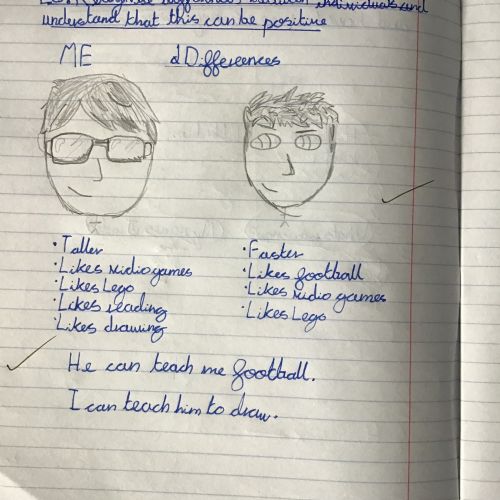 individuals and
understand that this can be positive
ME
dDifferences
• Taller
• Likes vidio games
• Likes Lego
• Likes reading
• Likes drawing
• Faster
• Likes football
• Likes vidio games
• Likes Lego
He can teach me football.
I can teach him to draw.